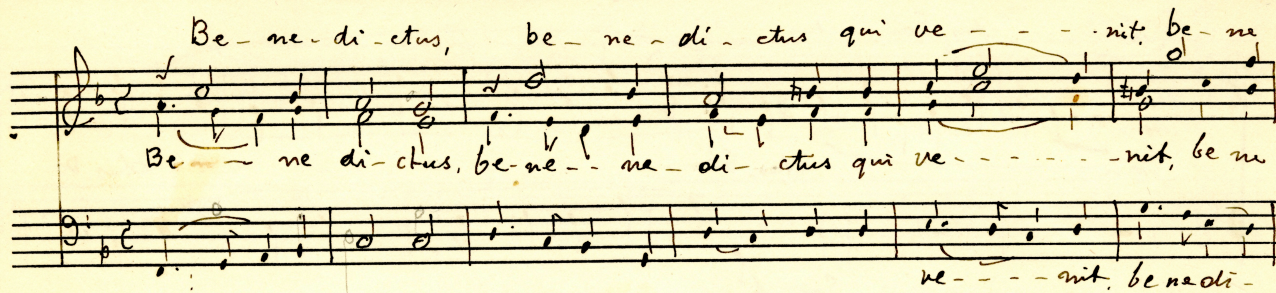 Be - ne - di - ctus, be - ne - di - ctus qui ve - - - - nit, be - ne
Be - - - ne di - ctus, be - ne - - ne - di - ctus qui ve - - - - - - - nit, be ne
ve - - - - nit, be ne di -